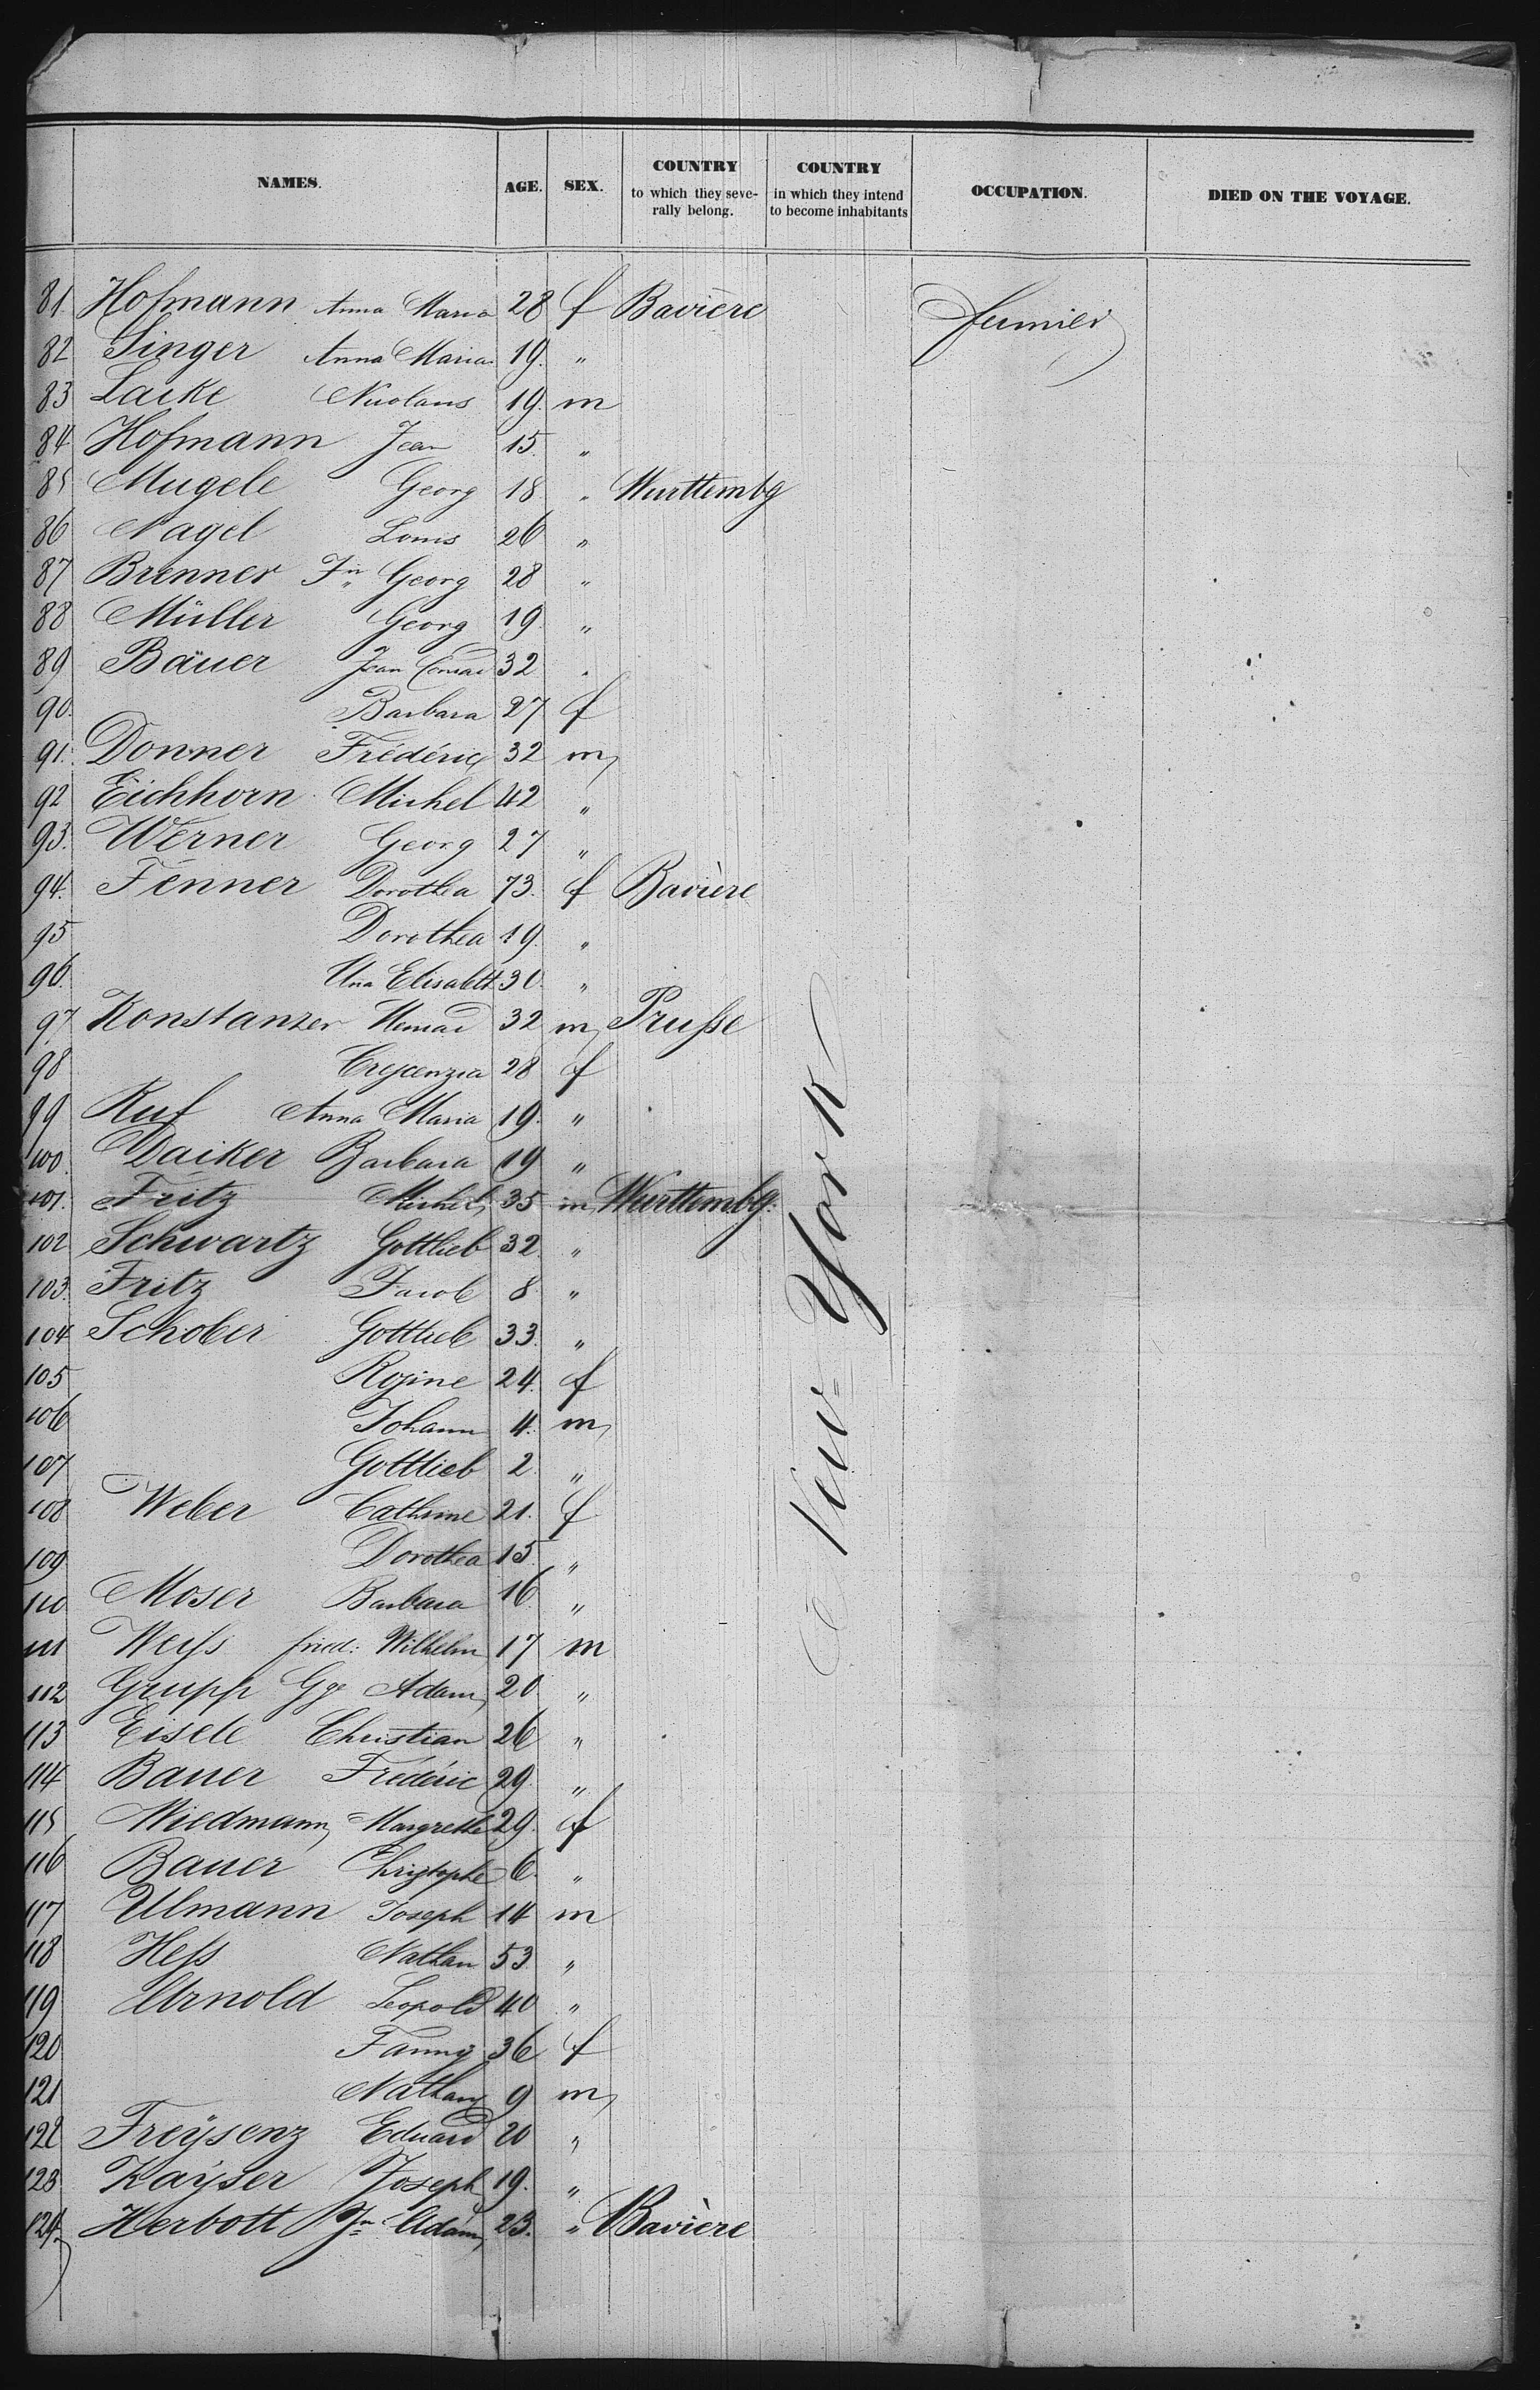 NAMES. AGE. SEX. COUNTRY to which they severally belong. COUNTRY in which they intend to become inhabitants OCCUPATION. DIED ON THE VOYAGE.
81. Hofmann Anna Maria 28 f Bavière
82 Singer Anna Maria 19. "
83 Laike 19. m
84 Hofmann Jean 15. "
85 Mugele Georg 18 " Wurttembg
86 Nagel Louis 26 "
87 Brenner Jn Georg 28 "
88 Müller Georg 19. "
89 Bauer Jean Conrad 32 "
90. Barbara 27 f
91. Donner Fréderic 32 m
92 Eichhorn Michel 42 "
93. Werner Georg 27 "
94. Fenner Dorothea 73. f Bavière
95 Dorothea 19. "
96. Elisabeth 30. "
97 Konstanzer 32 m Prusse
98 Crescenzia 28 f
99 Ruf Anna Maria 19. "
100. Daiker Barbara 19 "
101. Fritz Michel 35 m Wurttembg.
102 Schwartz Gottlieb 32. "
103. Fritz Jacob 8 "
104 Schober Gottlieb 33. "
105 Rosine 24. f
106 Johann 4. m
107 Gottlieb 2. "
108 Weber Cathrine 21. f
109 Dorothea 15. "
110 Moser Barbara 16 "
111 Weiss fried: Wilhelm 17 m
112 Grupp Gge Adam 20 "
113 Eisele Christian 26 "
114 Bauer Fréderic 29. "
115 Wiedmann Margrethe 29. f
116 Bauer Christophe 6. "
117 Ulmann Joseph 14 m
118 Hess Nathan 53. "
119 Arnold Leopold 40 "
120 Fanny 36 f
121 Nathan 9 m
122 Freysenz Eduard 20 "
123 Kayser Joseph 19. "
124. Herbott Jn Adam 23. " Bavière
New York